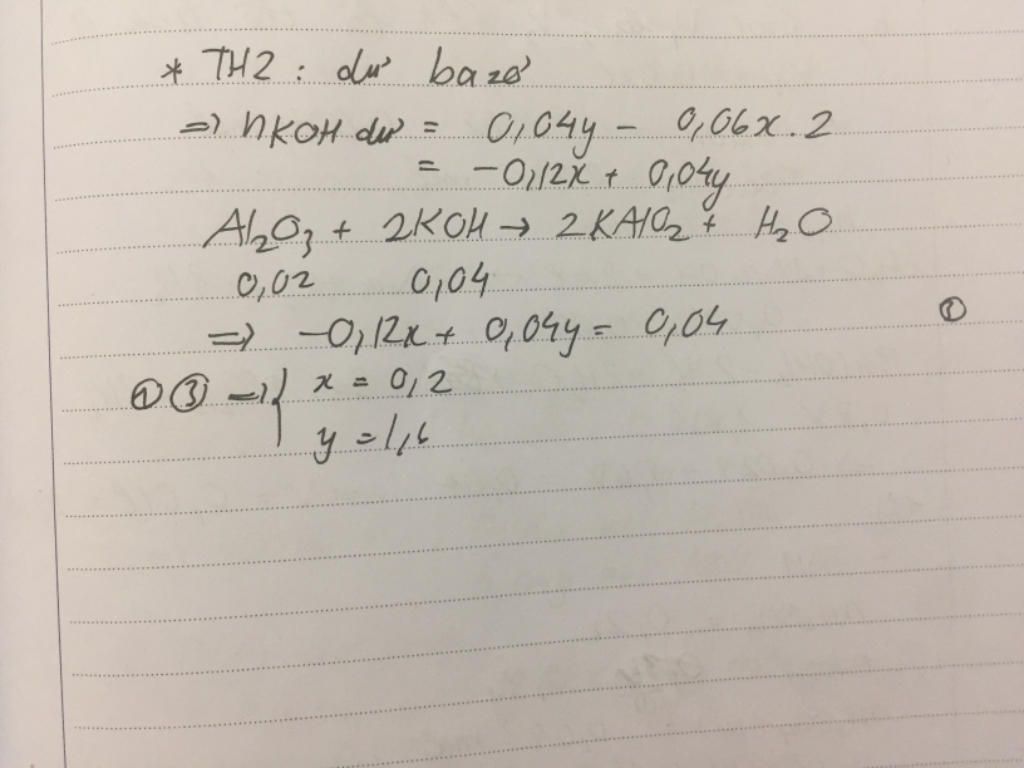 * TH2 : dư bazơ
=> nKOH dư = 0,04y - 0,06x.2
= -0,12x + 0,04y
Al₂O₃ + 2KOH → 2KAlO₂ + H₂O
0,02 0,04
=> -0,12x + 0,04y = 0,04
①③ => { x = 0,2
y = 1,6